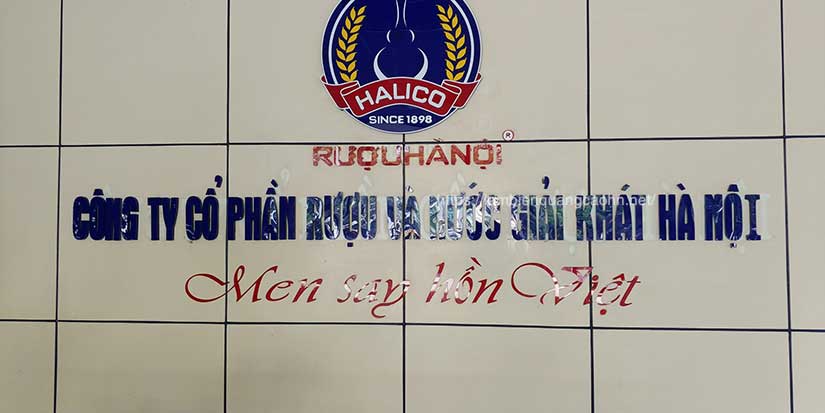 HALICO
SINCE 1898
RƯỢU HÀ NỘI ®
CÔNG TY CỔ PHẦN RƯỢU VÀ NƯỚC GIẢI KHÁT HÀ NỘI
Men say hồn Việt